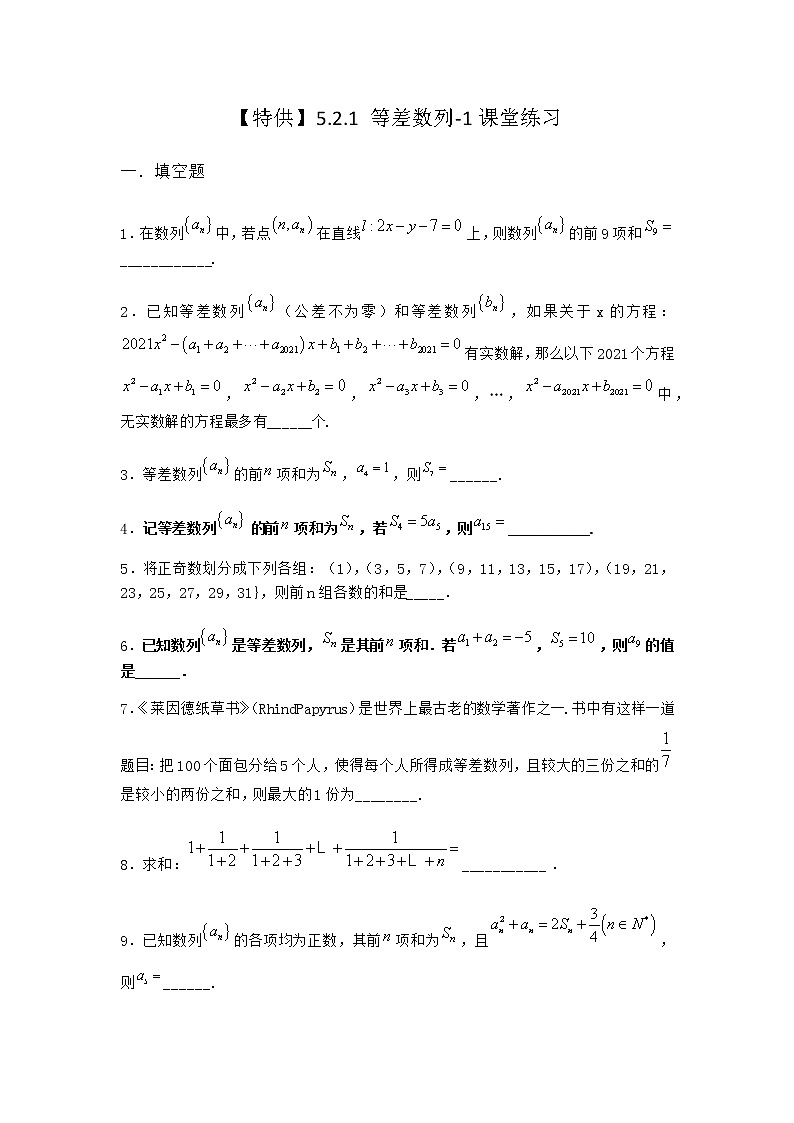 【特供】5.2.1 等差数列-1课堂练习
一. 填空题
1.在数列{aₙ}中,若点(n,aₙ)在直线l:2x−y−7=0上,则数列{aₙ}的前9项和S₉=
____________.
2.已知等差数列{aₙ}(公差不为零)和等差数列{bₙ},如果关于x的方程:
2021x²−(a₁+a₂+⋯+a₂₀₂₁)x+b₁+b₂+⋯+b₂₀₂₁=0有实数解,那么以下2021个方程
x²−a₁x+b₁=0,x²−a₂x+b₂=0,x²−a₃x+b₃=0,…,x²−a₂₀₂₁x+b₂₀₂₁=0中,
无实数解的方程最多有______个.
3.等差数列{aₙ}的前n项和为Sₙ,a₄=1,则S₇=______.
4.记等差数列{aₙ}的前n项和为Sₙ,若S₄=5a₅,则a₁₅=__________.
5.将正奇数划分成下列各组:(1),(3,5,7),(9,11,13,15,17),(19,21,
23,25,27,29,31},则前n组各数的和是_____.
6.已知数列{aₙ}是等差数列,Sₙ是其前n项和.若a₁+a₂=−5,S₅=10,则a₉的值
是______.
7.《莱因德纸草书》(RhindPapyrus)是世界上最古老的数学著作之一.书中有这样一道
题目:把100个面包分给5个人,使得每个人所得成等差数列,且较大的三份之和的1/7
是较小的两份之和,则最大的1份为________.
8.求和:1+1/(1+2)+1/(1+2+3)+L+1/(1+2+3+L+n)=___________.
9.已知数列{aₙ}的各项均为正数,其前n项和为Sₙ,且aₙ²+aₙ=2Sₙ+3/4(n∈N*),
则a₅=______.